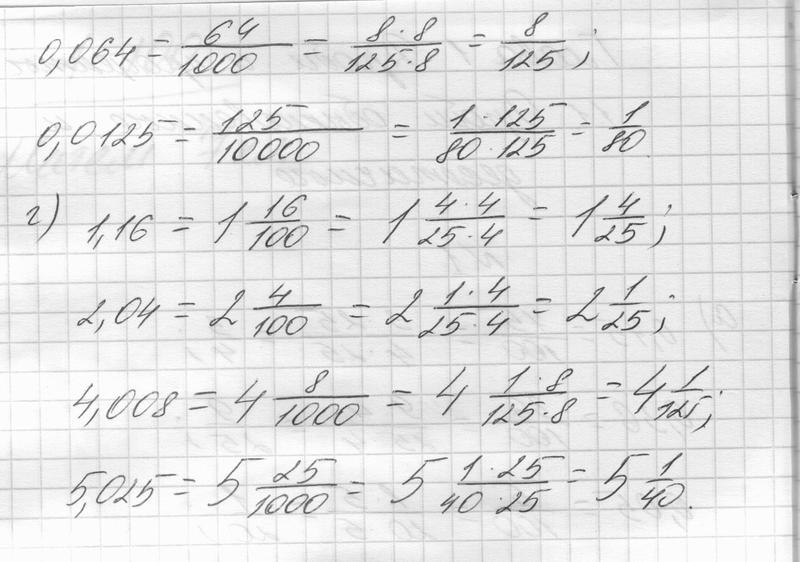 0,064 = 64/1000 = 8·8/125·8 = 8/125;
0,0125 = 125/10000 = 1·125/80·125 = 1/80.
г) 1,16 = 1 16/100 = 1 4·4/25·4 = 1 4/25;
2,04 = 2 4/100 = 2 1·4/25·4 = 2 1/25;
4,008 = 4 8/1000 = 4 1·8/125·8 = 4 1/125;
5,025 = 5 25/1000 = 5 1·25/40·25 = 5 1/40.